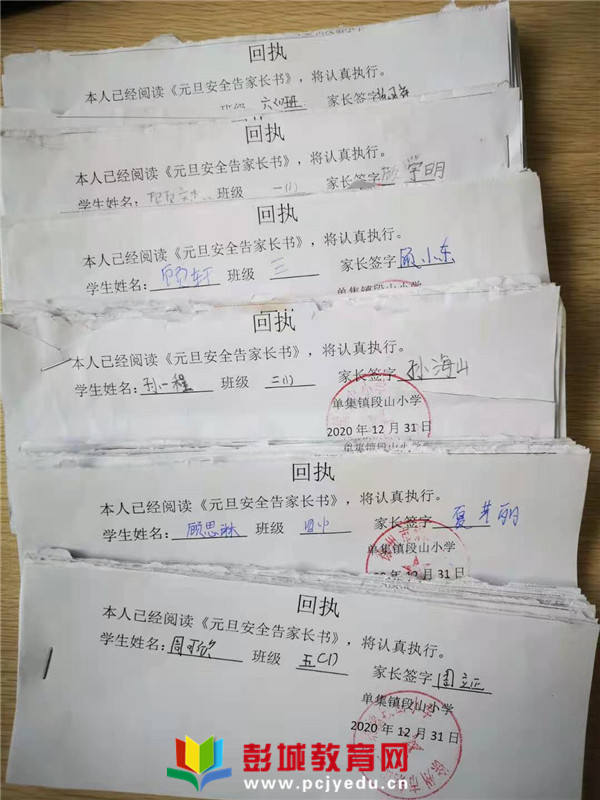 回执
本人已经阅读《元旦安全告家长书》，将认真执行。
班级 六(1)班 家长签字
回执
本人已经阅读《元旦安全告家长书》，将认真执行。
学生姓名： 班级 一(1) 家长签字 学明
回执
本人已经阅读《元旦安全告家长书》，将认真执行。
学生姓名：顾轩 班级 三 家长签字 顾小东
单集镇段山小学
回执
本人已经阅读《元旦安全告家长书》，将认真执行。
学生姓名：孙一程 班级 二(1) 家长签字 孙海山
单集镇段山小学
2020 年 12 月 31 日
单集镇段山小学
回执
本人已经阅读《元旦安全告家长书》，将认真执行。
学生姓名：顾思琳 班级 家长签字 夏 丽
单集镇段山小学
12 月 31 日
回执
本人已经阅读《元旦安全告家长书》，将认真执行。
学生姓名：周可欣 班级 五(1) 家长签字 周立正
单集镇段山小学
2020 年 12 月 31 日
彭城教育网
www.pcjyedu.cn